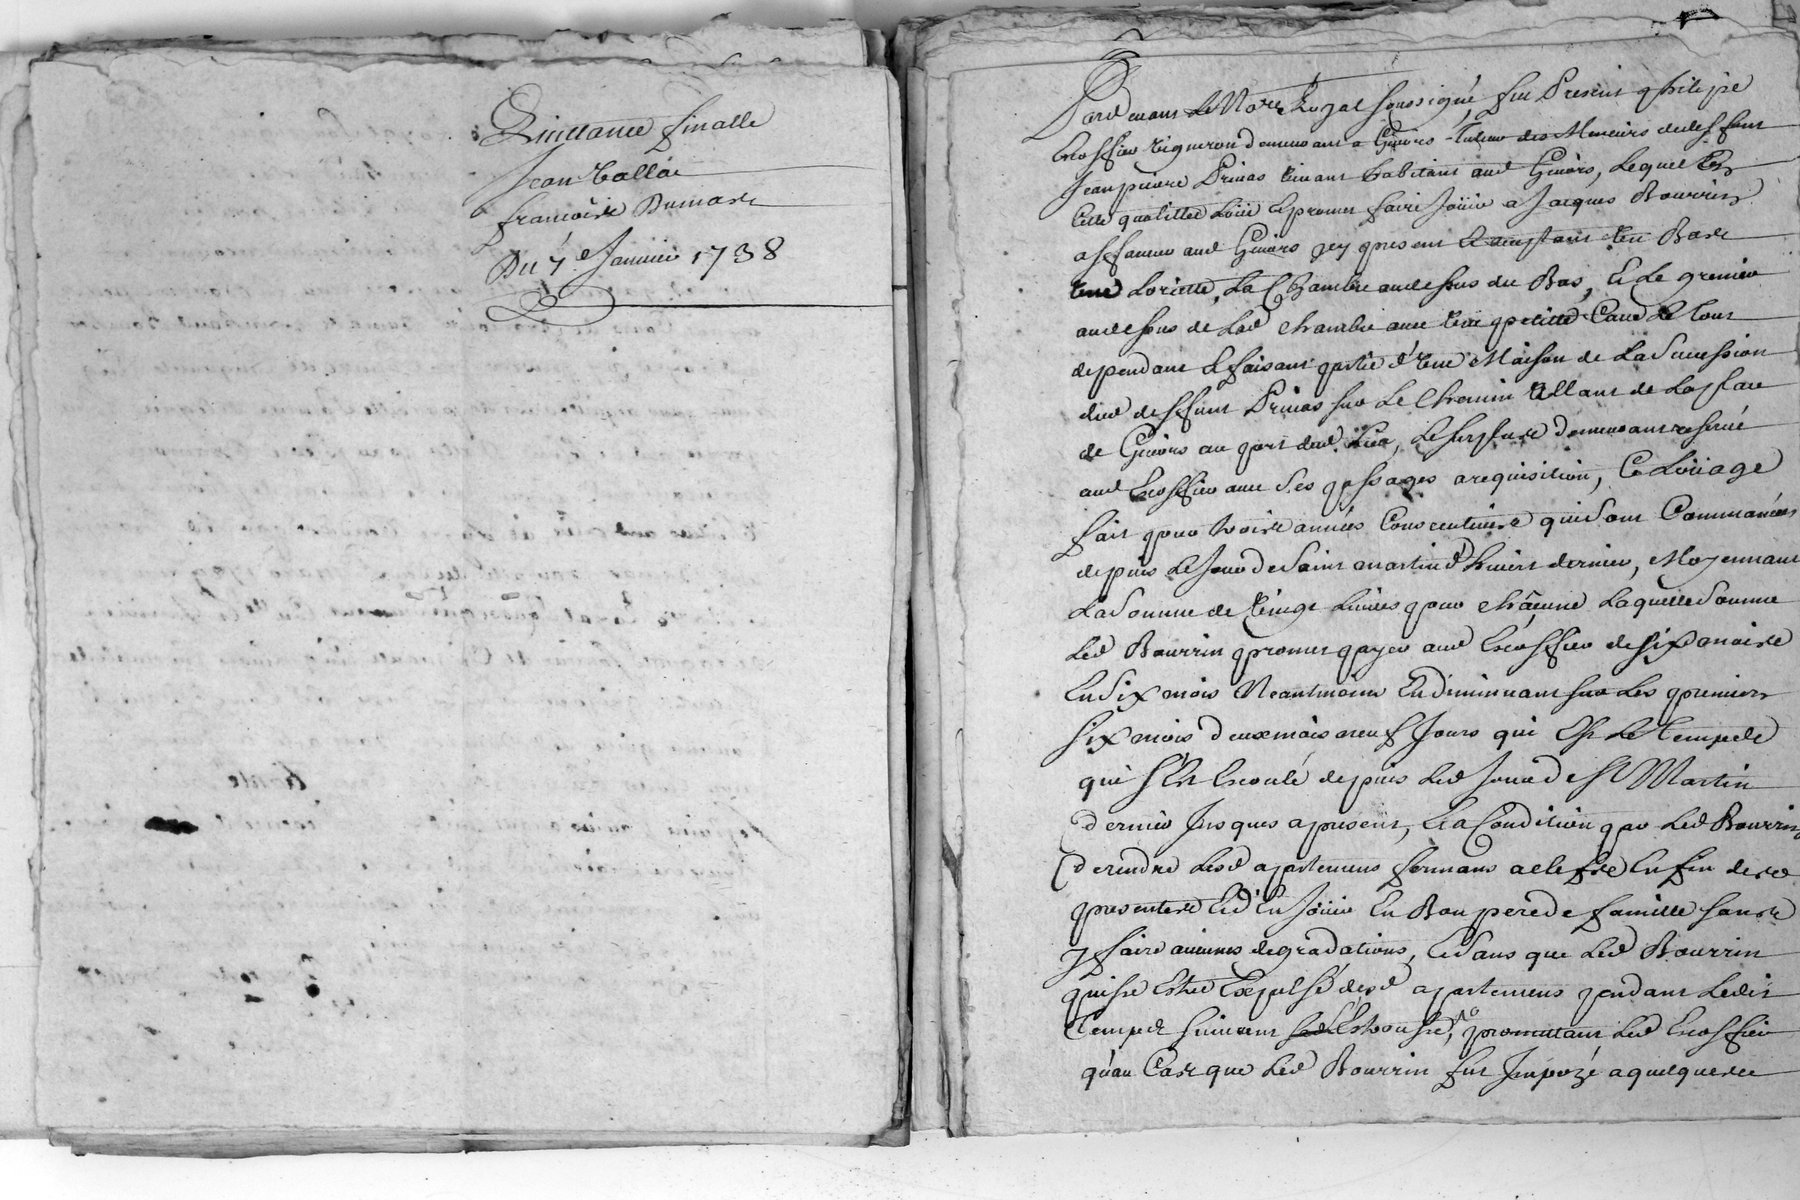 Quittance finalle
Jean Vallai
françoise Dumas
Du 7e Janvier 1738
Pardevant Le No.re Royal soussigné, fut Present philipe
Escoffier vigneron demeurant a Givors Tuteur des Mineurs de deffunt
Jean pierre Privas vivant habitant aud Givors, Lequel En
Cette qualitée Loüe Et promet faire Joüir a Jacques Bourrin
affaneur aud Givors icy present Et acceptant Un Bas
Une Loriette, La Chambre audessus du Bas, Et Le grenier
audessus de Lad chambre avec Une petitte Cave Le tout
dependant Et faisant partie d'Une Maison de La Sucession
dud deffunt Privas sur Le Chemin Allant de La place
de Givors au port dud Lieu, Le surplus demeurant reservé
aud Escoffier avec Ses passages a requisition, Ce Loüage
fait pour trois années Consecutives qui Sont Commancées
depuis Le Jour de Saint martin d'hivert dernier, Moyennant
La Somme de Vingt Livres pour châcune Laquelle Somme
Led Bourrin promet payer aud Escoffier de six mois
En Six mois Neantmoins En diminuant sur Les premiers
six mois deux mois neuf Jours qui Est Le temps
qui s'Est Escoulé depuis Led Jour de St Martin
dernier Jusques a present, Et a Condition par Led Bourrin
de rendre Lesd apartemens fermans a clefs En fin des
presentes Et d'En Joüir En Bon pere de famille sans
y faire aucunes degradations, Et Sans que Led Bourrin
puisse Estre Expulsé desd apartemens pendant Ledit
temps suivant promettant Led Escoffier
qu'au Cas que Led Bourrin fut Impozé a quelque